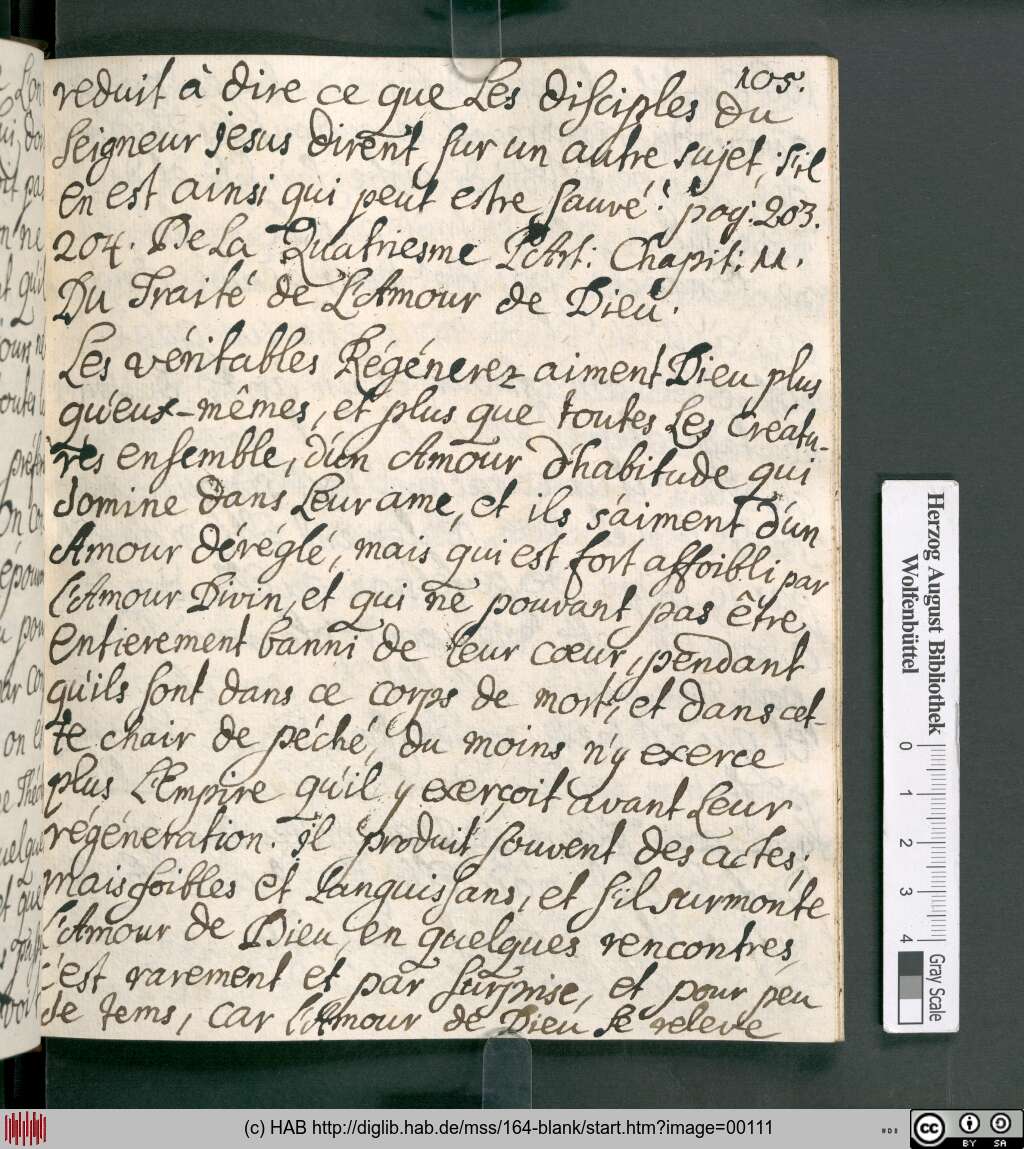 105.
reduit à dire ce que Les disciples du
Seigneur jesus dirent, sur un autre sujet, s'il
En est ainsi qui peut estre sauvé? pag: 203.
204. De La Quatriesme Part: Chapit: 11.
Du Traité de L'Amour de Dieu.
Les véritables Régénerez aiment Dieu plus
qu'eux-mêmes, et plus que toutes Les Créatu-
res ensemble, d'un Amour d'habitude qui
domine dans Leur ame, et ils s'aiment d'un
Amour déréglé, mais qui est fort affoibli par
l'Amour Divin, et qui ne pouvant pas être
Entierement banni de leur cœur, pendant
qu'ils sont dans ce corps de mort, et dans cet-
te chair de péché, du moins n'y exerce
plus L'Empire qu'il y exerçoit avant Leur
régéneration. il produit souvent des actes;
mais foibles et Languissans, et s'il surmonte
l'Amour de Dieu en quelques rencontres,
c'est rarement et par surprise, et pour peu
de tems, car l'Amour de Dieu se releve
Herzog August Bibliothek
Wolfenbüttel
0 1 2 3 4
Gray Scale
(c) HAB http://diglib.hab.de/mss/164-blank/start.htm?image=00111
cc BY SA